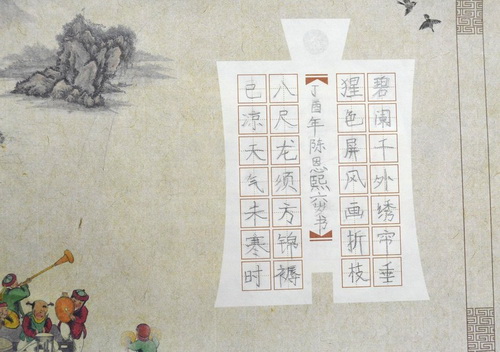 碧阑干外绣帘垂
猩色屏风画折枝
八尺龙须方锦褥
已凉天气未寒时
丁酉年陈思熙书